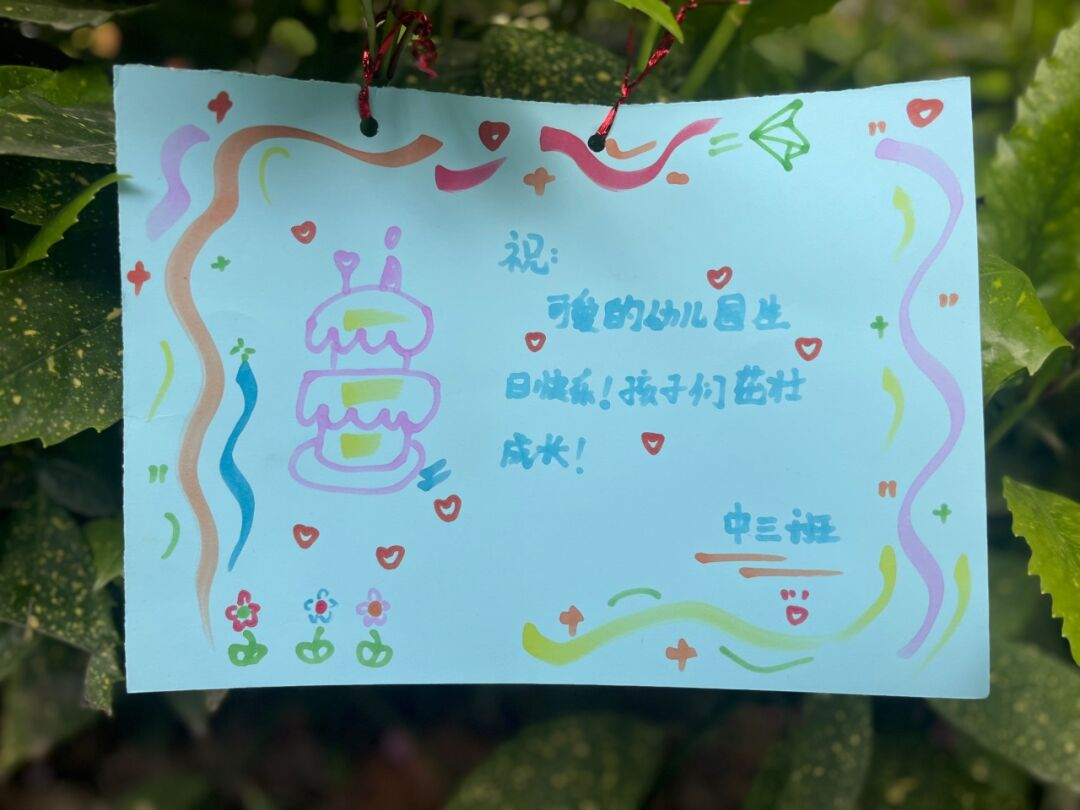 祝:
可爱的幼儿园生
日快乐!孩子们茁壮
成长!
中三班